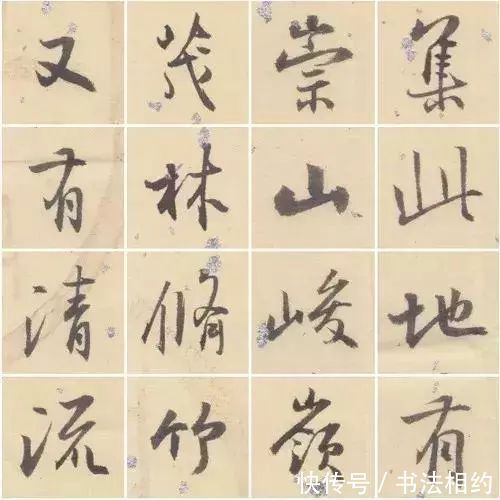 集此地有
崇山峻嶺
茂林脩竹
又有清流
快传号 / 书法相约